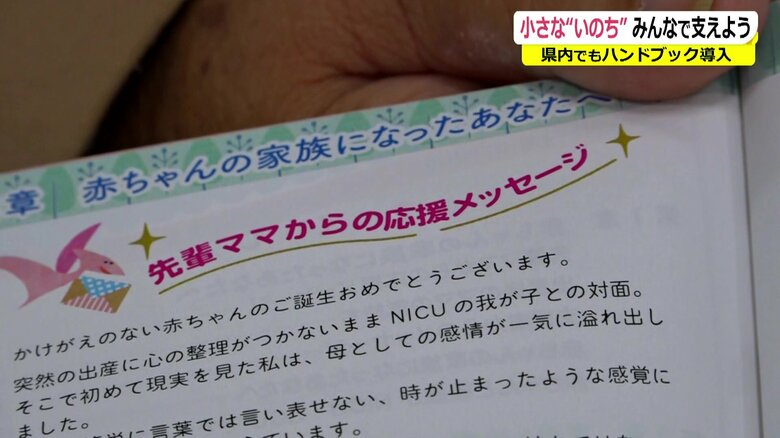 小さな“いのち” みんなで支えよう
県内でもハンドブック導入
章 赤ちゃんの家族になったあなたへ
先輩ママからの応援メッセージ
かけがえのない赤ちゃんのご誕生おめでとうございます。
突然の出産に心の整理がつかないまま NICU の我が子との対面。
そこで初めて現実を見た私は、母としての感情が一気に溢れ出し
ました。
に言葉では言い表せない、時が止まったような感覚に
ています。